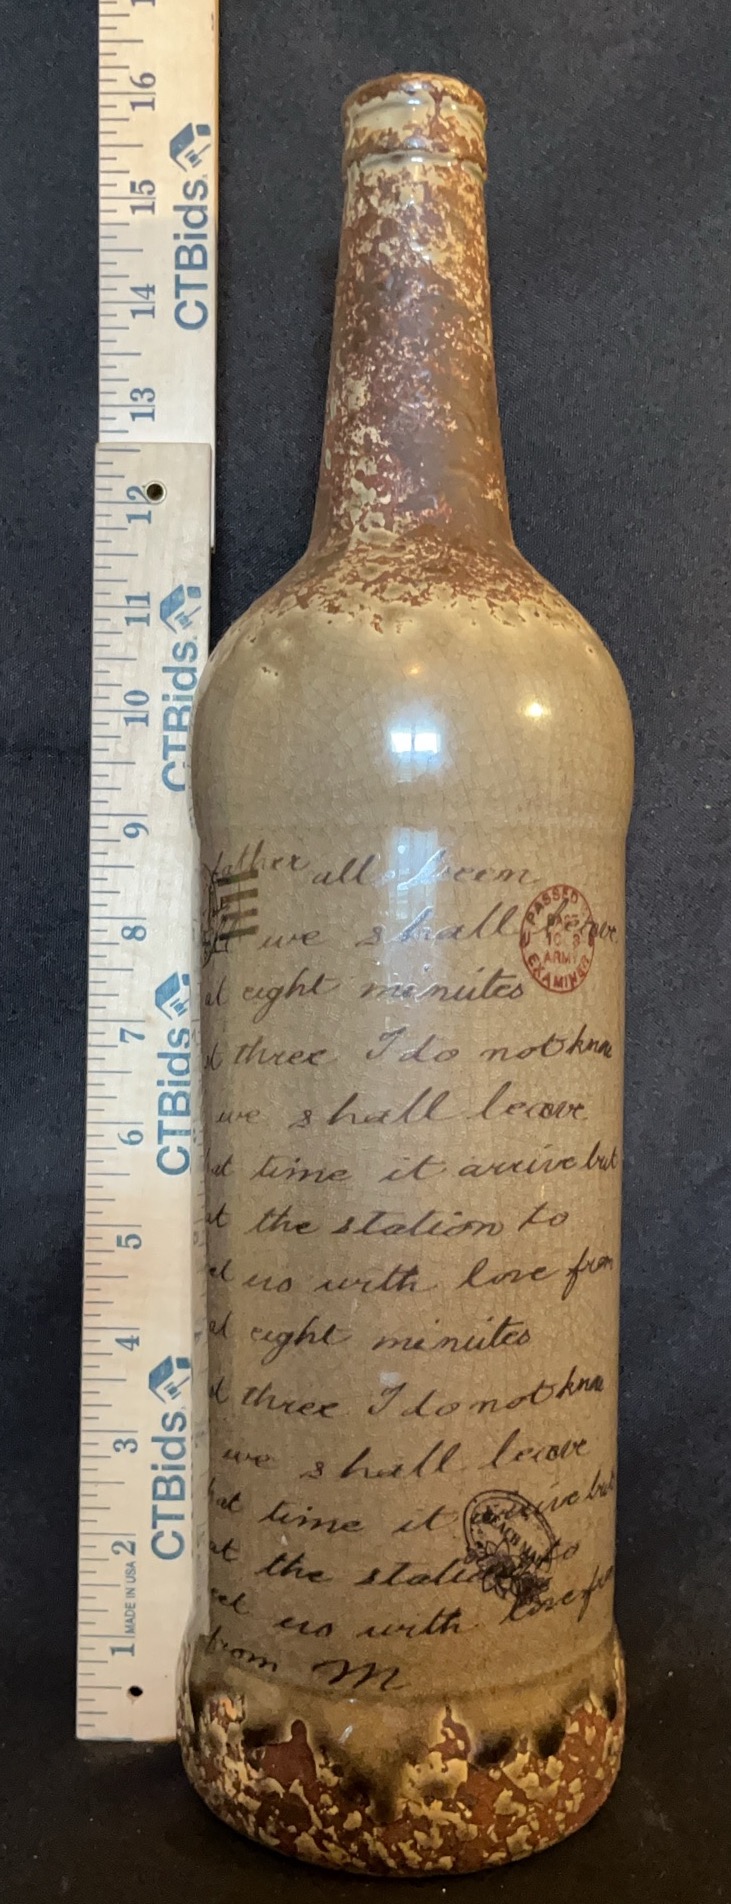 16
CTBids
15
14
13
12
11
CTBids
10
9
8
CTBids
7
6
5
4
CTBids
3
2
MADE IN USA
1
father all
we shall leave
at eight minutes
three I do not know
we shall leave
time it arrive but
at the station to
us with love from
at eight minutes
three I do not know
we shall leave
time it arrive but
at the station to
us with love from
from M
PASSED
ARMY
EXAMINER